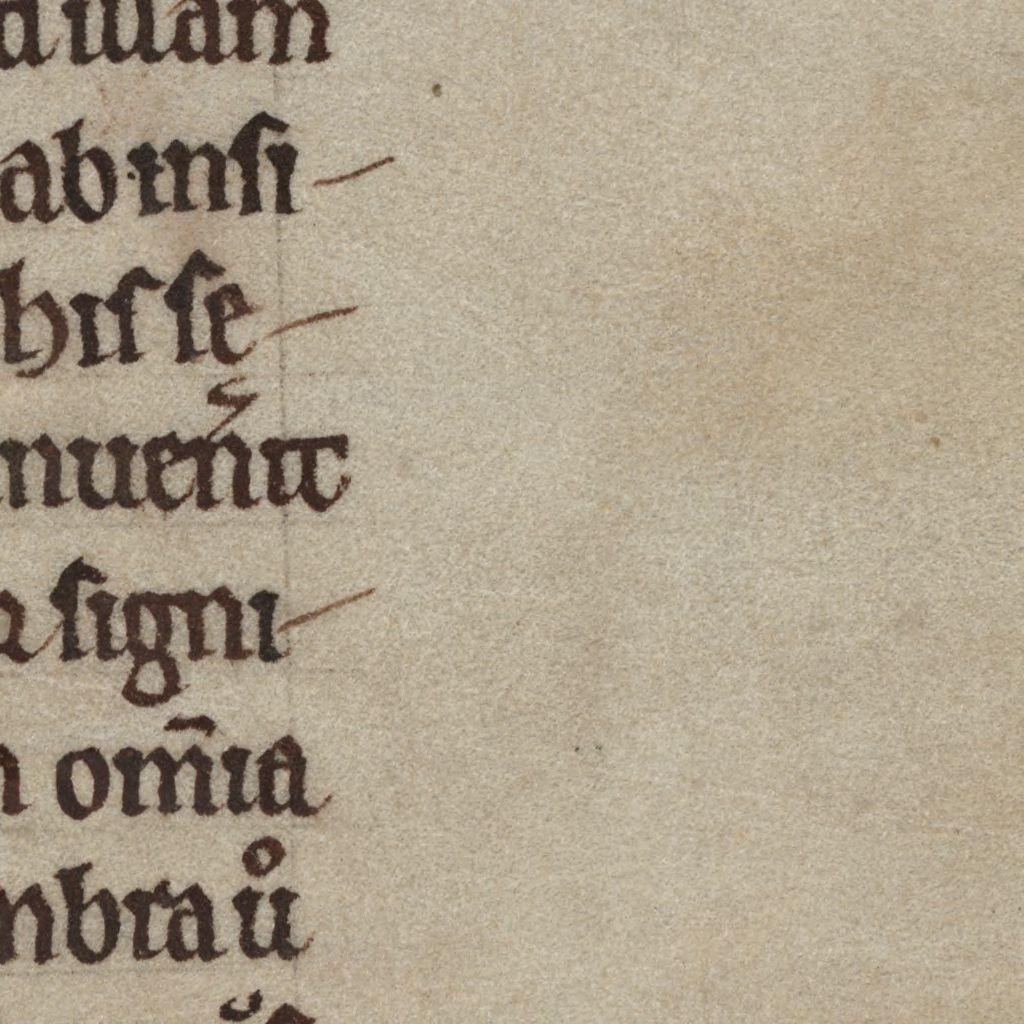 d illam
ab insi-
hıſ ſe-
nuen̄it
ſigni-
om̄ia
nbra uͦ